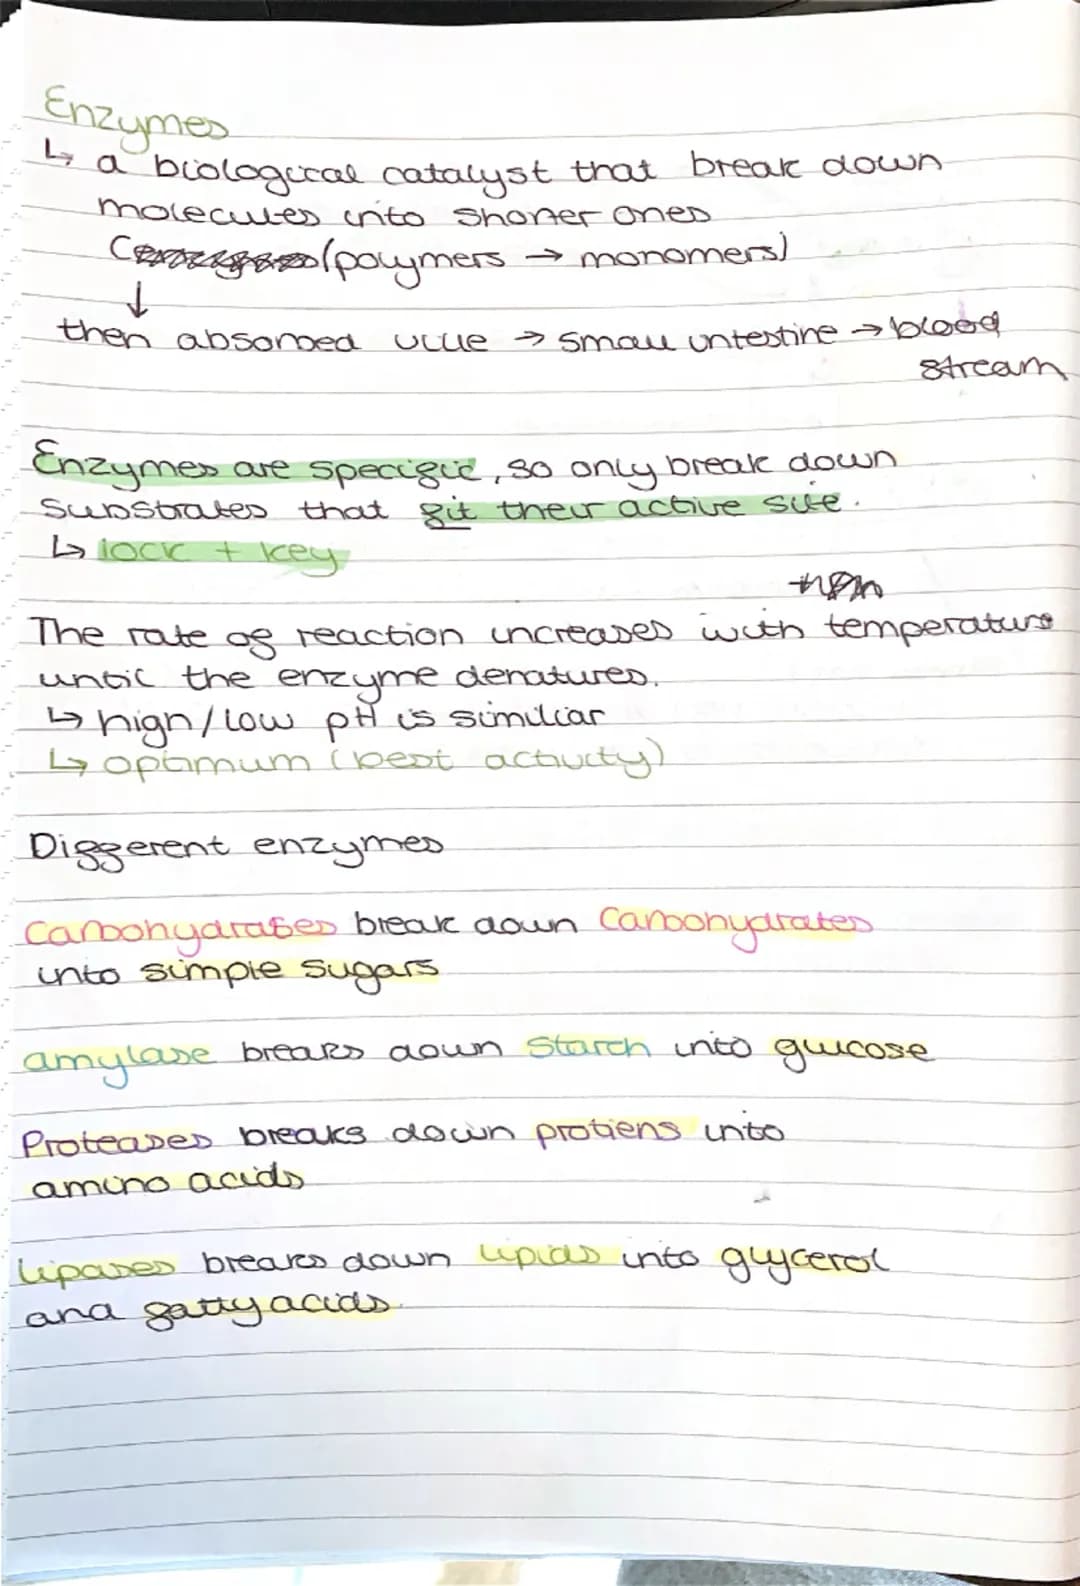 Enzymes
↳ a biological catalyst that break down
molecules into shorter ones
(polymers → monomers)
↓
then absorbed → small intestine → blood
stream
Enzymes are specific, so only break down
substrates that fit their active site.
↳ lock + key
The rate of reaction increases with temperature
until the enzyme denatures.
↳ high/low pH is similiar
↳ optimum (best activity)
Different enzymes
Carbohydrases break down Carbohydrates
into simple sugars
amylase breaks down starch into glucose
Proteases breaks down protiens into
amino acids
lipases breaks down lipids into glycerol
and fatty acids.